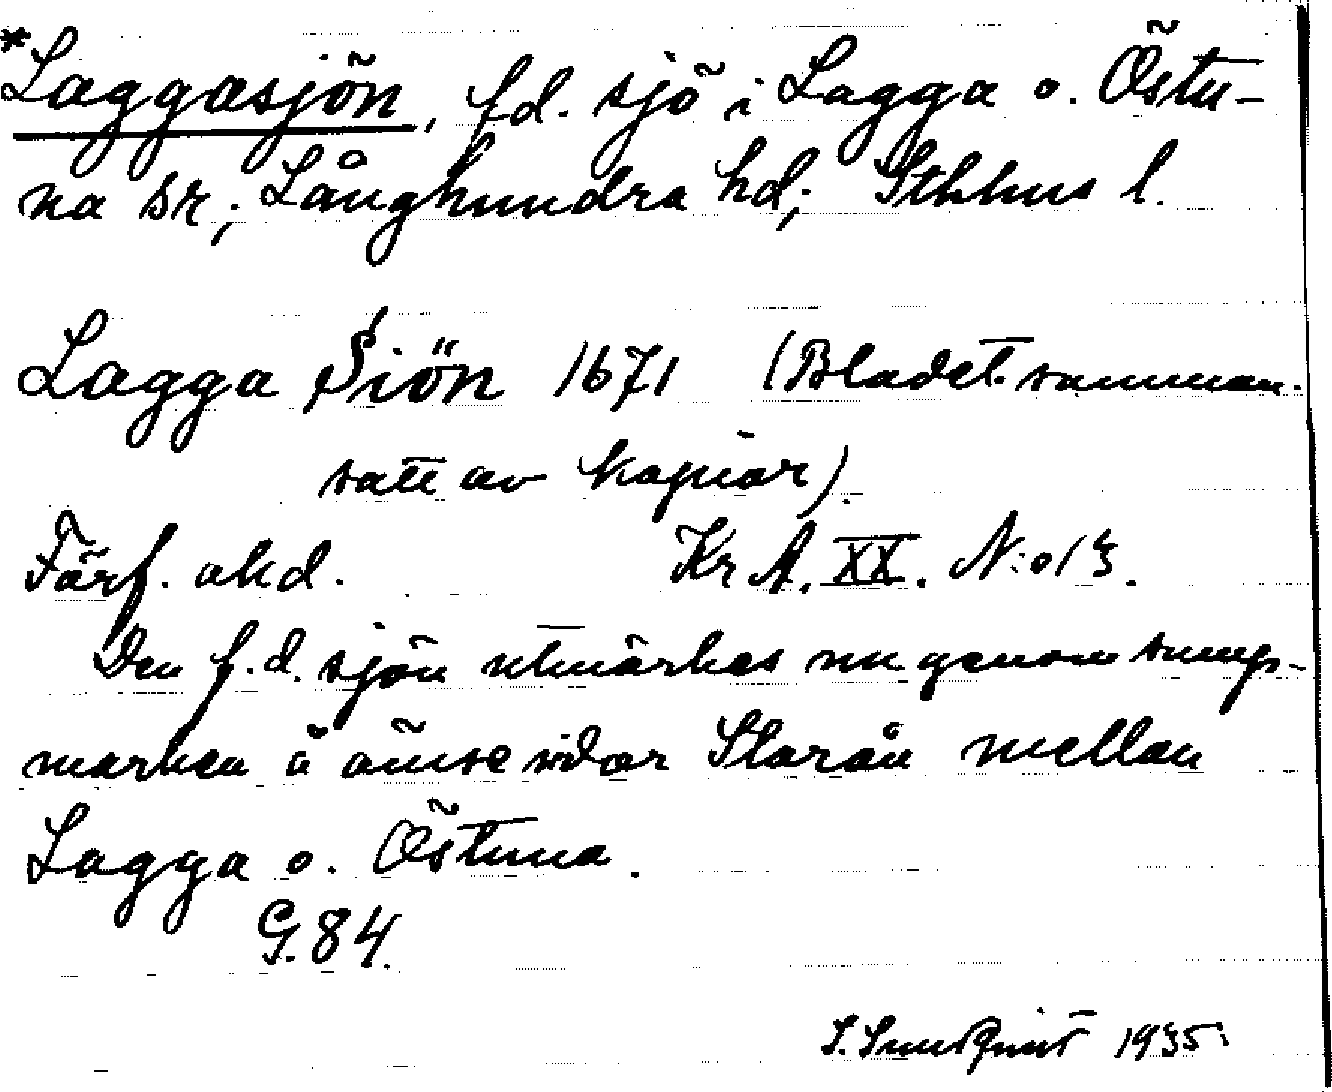 *Laggasjön, f.d. sjö i Lagga o. Östu-
na sr; Långhundra hd; Sthlms l.
Lagga Siön 1671 (Bladet samman-
satt av kopior)
Förf. okd. Kr A. XX. N:o 13.
Den f.d. sjön utmärkes nu genom sump-
marken å ömse sidor Storån mellan
Lagga o. Östuna.
G. 84.
S. Sundqvist 1935